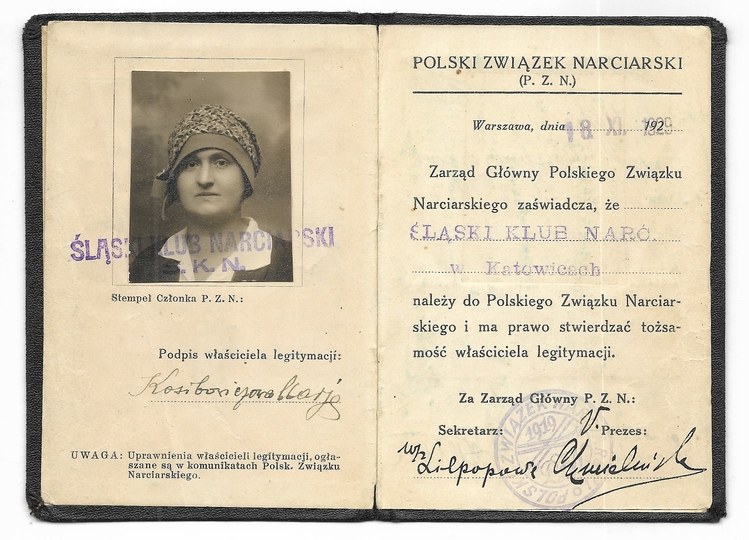 ŚLĄSKI KLUB NARCIARSKI
S. K. N.
Stempel Członka P. Z. N.:
Podpis właściciela legitymacji:
UWAGA: Uprawnienia właścicieli legitymacji, ogła-
szane są w komunikatach Polsk. Związku
Narciarskiego.
POLSKI ZWIĄZEK NARCIARSKI
(P. Z. N.)
Warszawa, dnia 18 XI. 1929
Zarząd Główny Polskiego Związku
Narciarskiego zaświadcza, że
ŚLĄSKI KLUB NARC.
w Katowicach
należy do Polskiego Związku Narciar-
skiego i ma prawo stwierdzać tożsa-
mość właściciela legitymacji.
Za Zarząd Główny P. Z. N.:
Sekretarz: V. Prezes:
1919